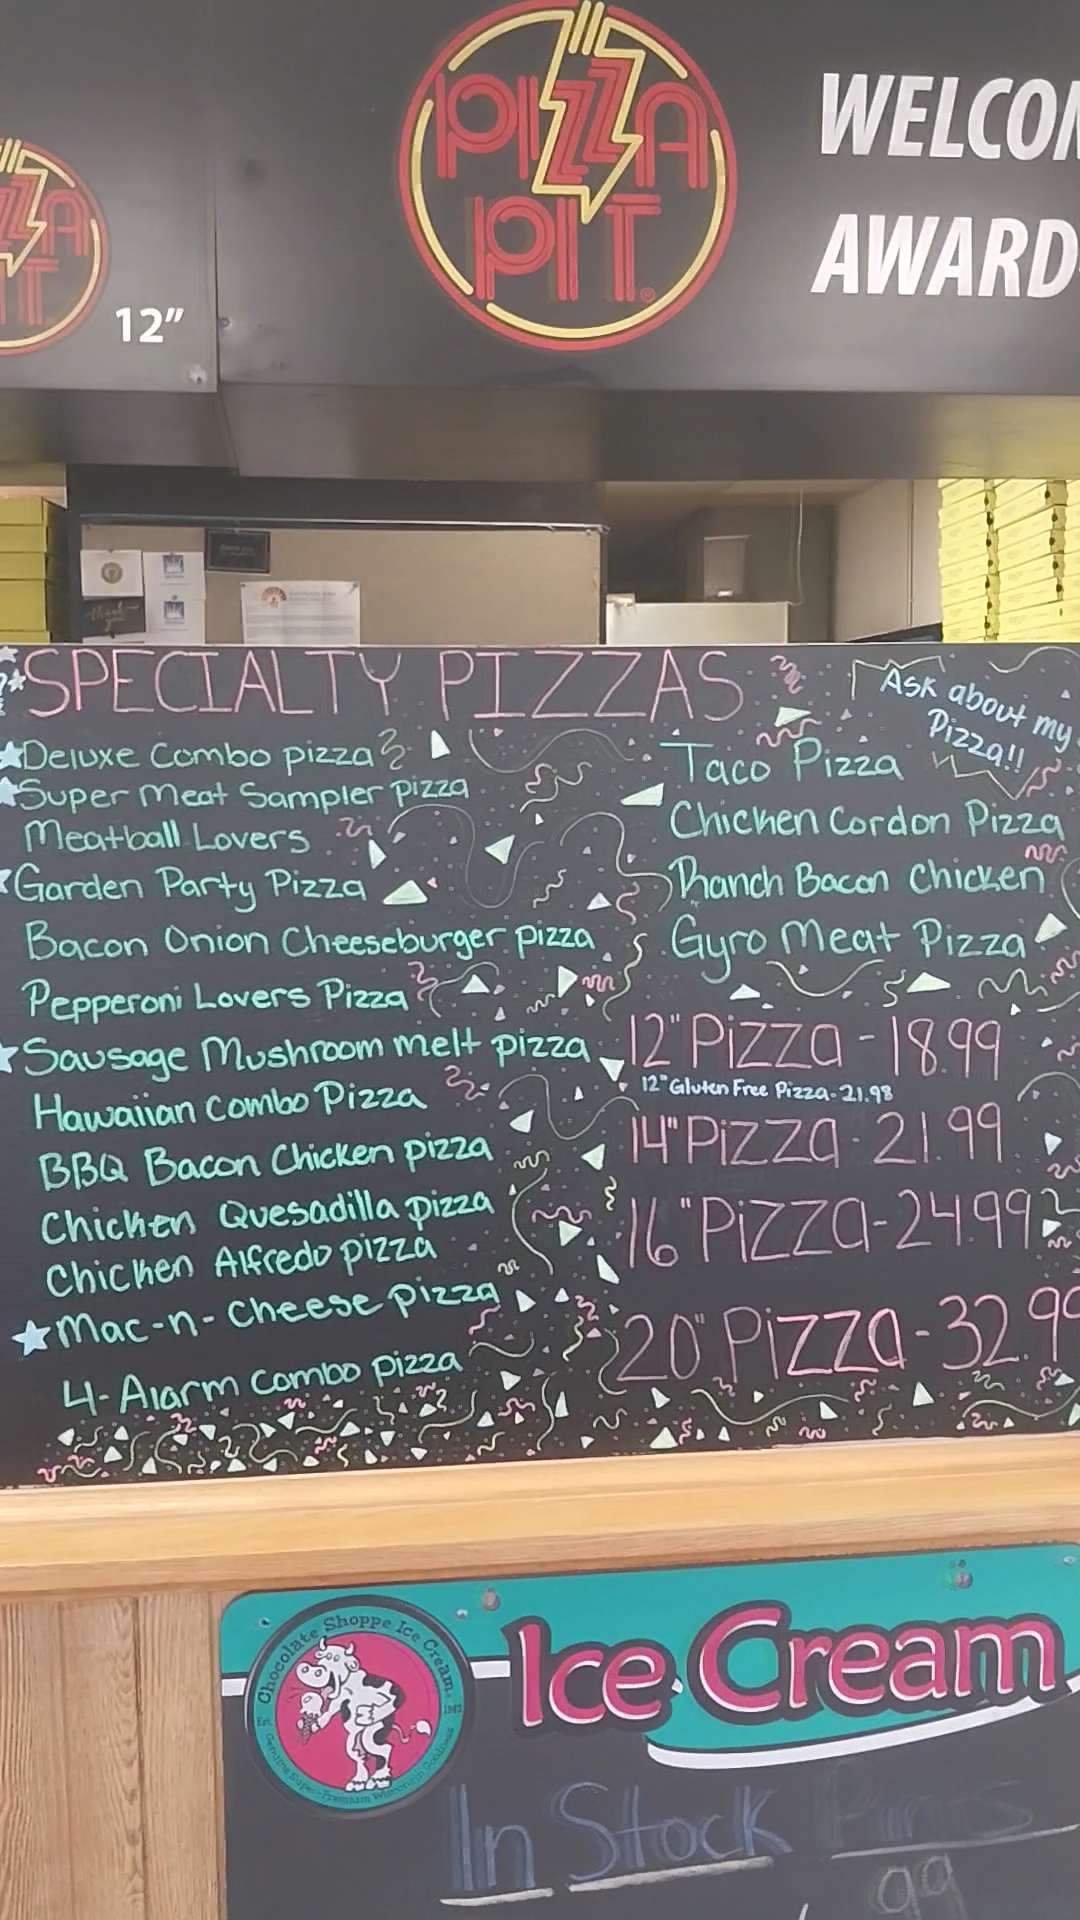 PIZZA
PIT
®
12”
WELCOM
AWARD
thank
you
SPECIALTY PIZZAS
Ask about my
Pizza!!
Deluxe Combo pizza
Super Meat Sampler pizza
Meatball Lovers
Garden Party Pizza
Bacon Onion Cheeseburger pizza
Pepperoni Lovers Pizza
Sausage Mushroom melt pizza
Hawaiian Combo Pizza
BBQ Bacon Chicken pizza
Chicken Quesadilla pizza
Chicken Alfredo pizza
Mac-n-Cheese pizza
4-Alarm Combo pizza
Taco Pizza
Chicken Cordon Pizza
Ranch Bacon Chicken
Gyro Meat Pizza
12" Pizza - 18.99
12" Gluten Free Pizza - 21.98
14" Pizza - 21.99
16" Pizza - 24.99
20" Pizza - 32.99
Chocolate Shoppe Ice Cream
Est. 1962
Genuine Super-Premium Wisconsin Goodness
Ice Cream
In Stock Pints
99